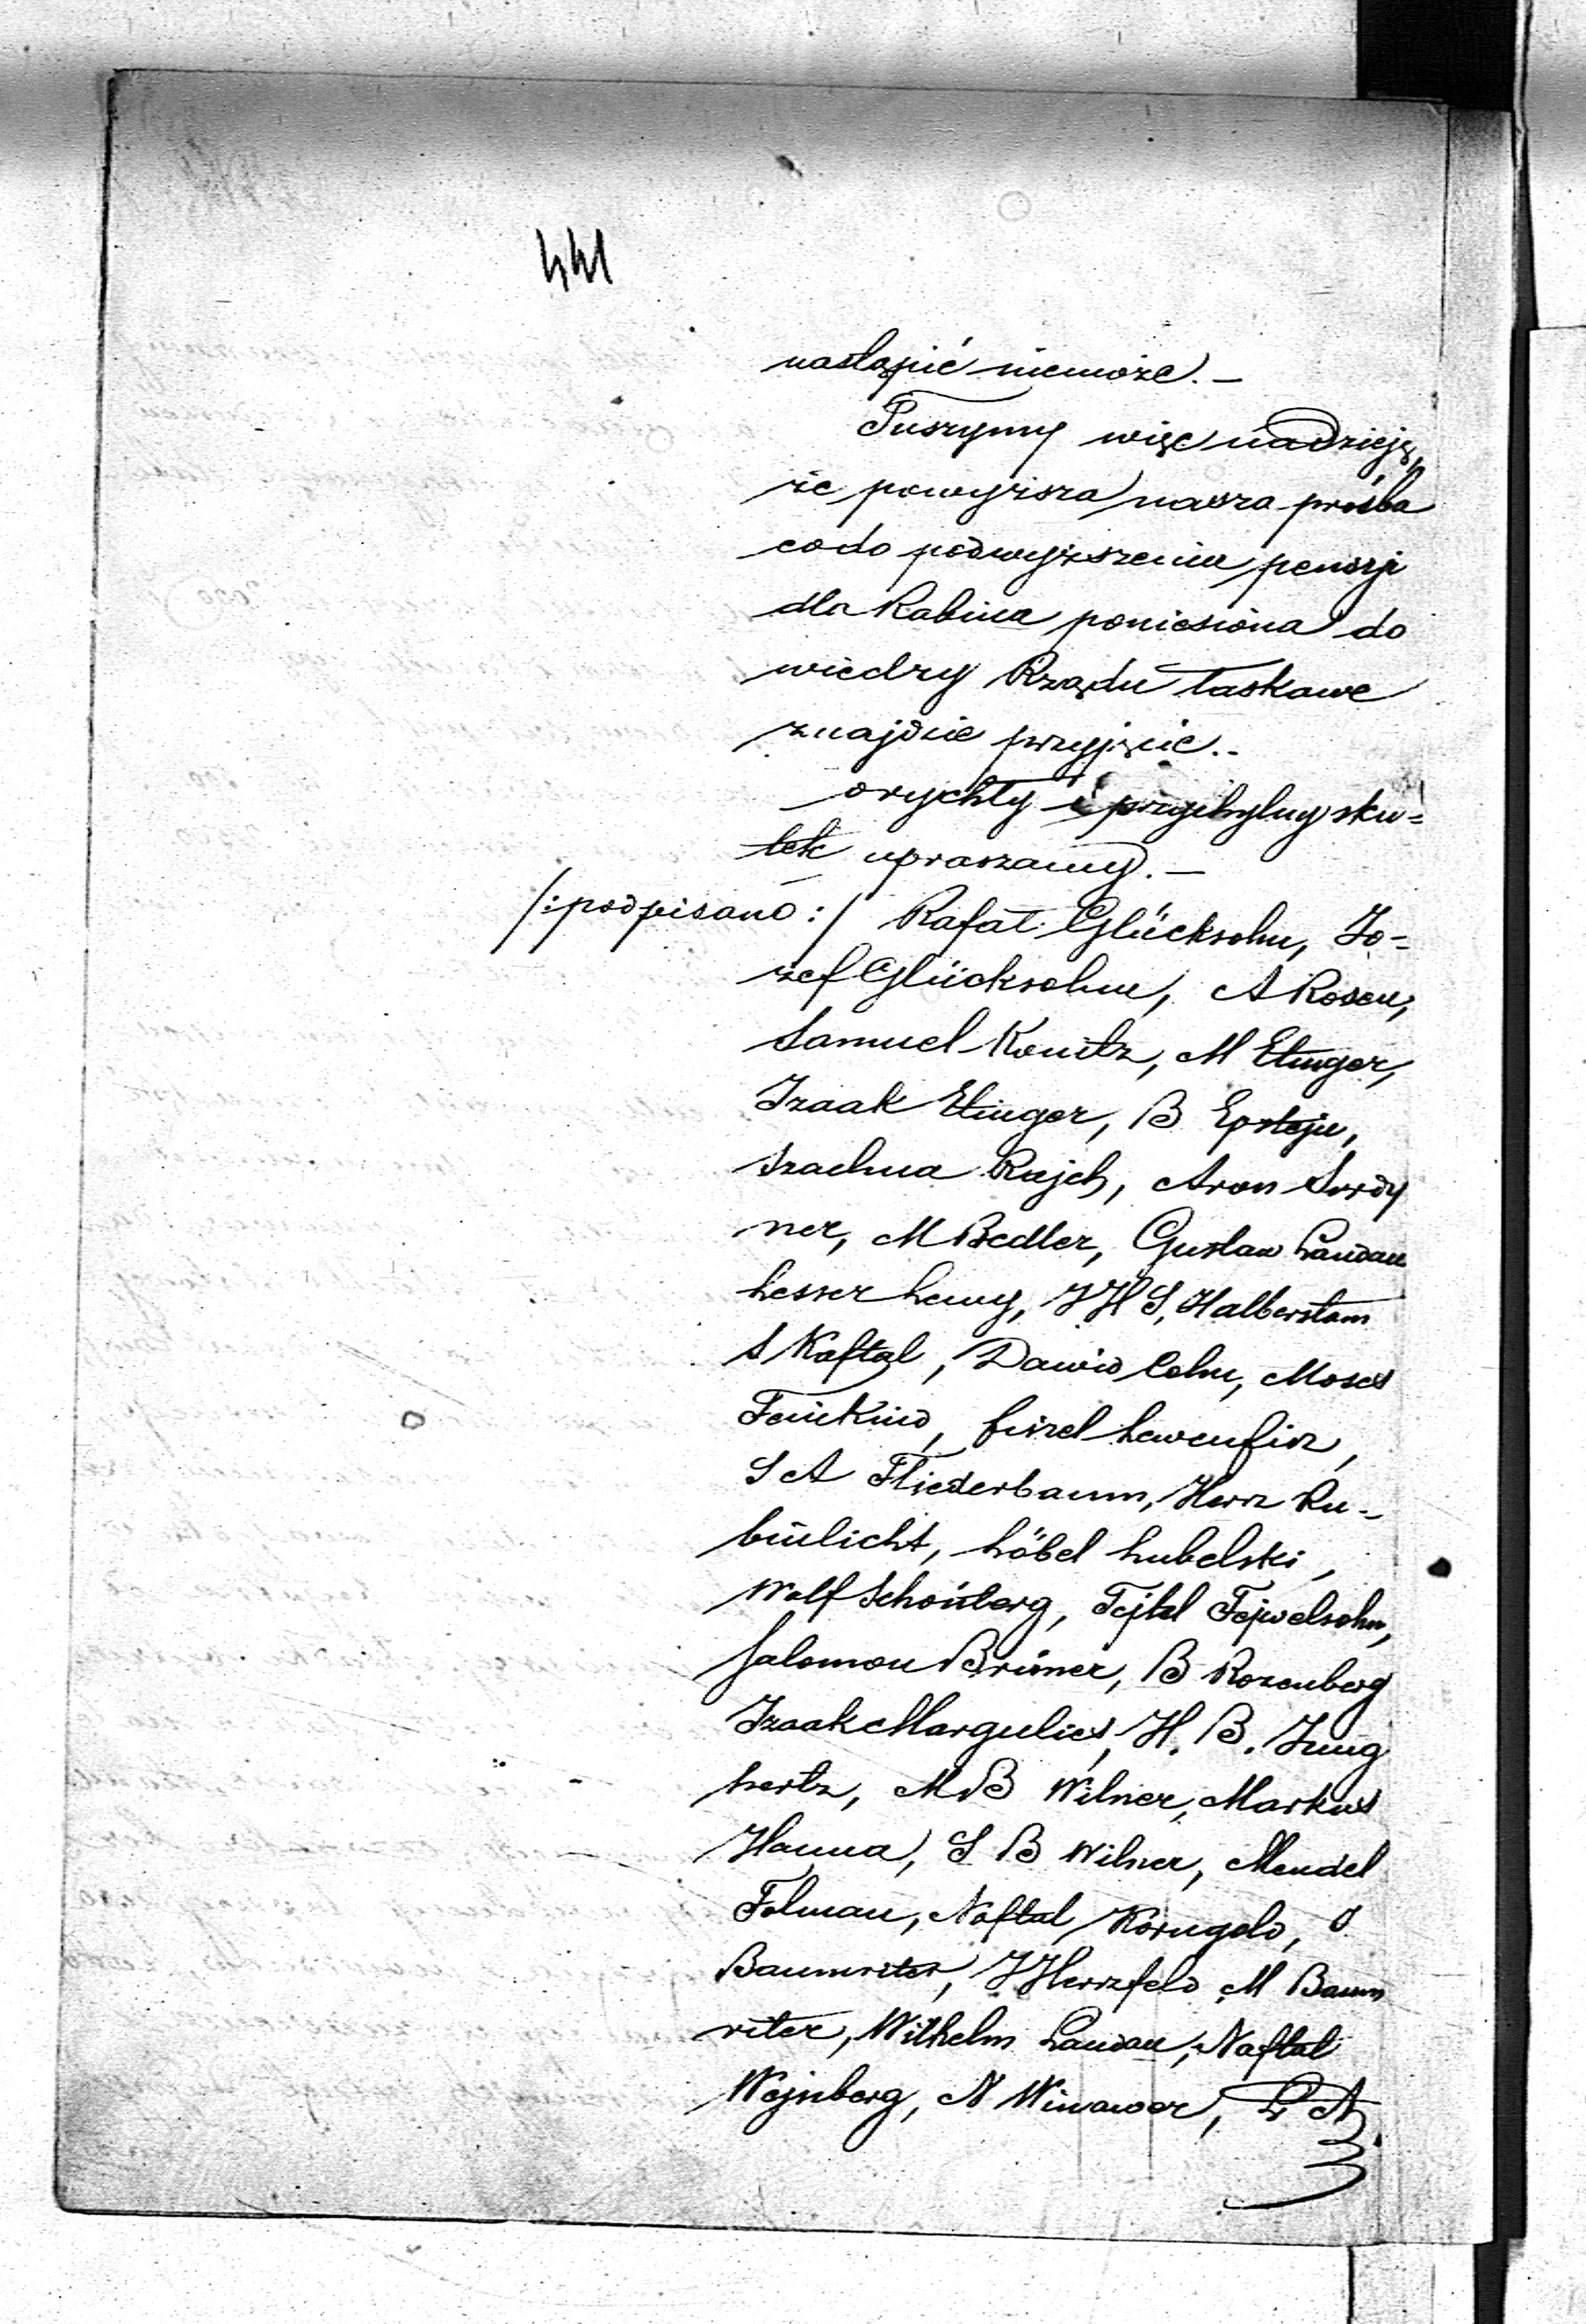 441
nastąpić niemoże. –
Tuszymy więc nadzieję,
że powyższa nasza prośba
codo podwyższenia pensji
dla Rabina poniesiona do
wiedzy Rządu łaskawe
znajdzie przyjęcie. –
o rychły i przychylny sku=
tek upraszamy. –
/: podpisano :/ Rafał Glücksohn, Jo=
zef Glücksohn, A Rosen,
Samuel Konitz, M Etinger,
Izaak Etinger, B Epstejn,
Szachna Rajch, Aron Surdy
ner, M Bedler, Gustaw Landau
Lesser Lewy, J H S, Halberstam
S Kaftal, Dawid Cohn, Moses
Feinkind, Fiszel Lewenfisz,
S A Fliederbaum, Herz Ru=
binlicht, Löbel Lubelski,
Wolf Schönberg, Tejtel Fejwelsohn,
Salomon Brüner, B Rozenberg
Izaak Margulies, H. B. Jung
hertz, M B Wilner, Markus
Hanna, S B Wilner, Mendel
Felman, Naftal Korngold, J
Baumriter, J Herzfeld M Baum
riter, Wilhelm Landau, Naftal
Wejnberg, N Winawer, L A